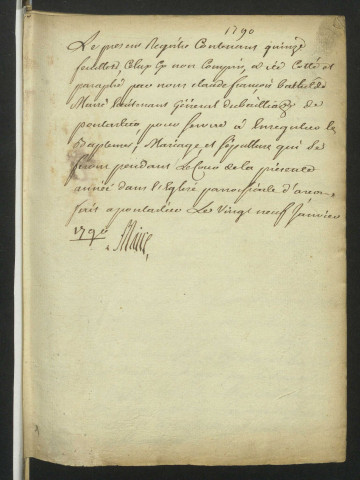 1790
Le present Registre Contenant quinze
feuillets, celuy cy non Compris, a été Cotté et
paraphé par nous claude françois
Mairé Lieutenant Général du bailliage de
pontarlier, pour servir à Enregistrer les
Baptemes, Mariages, et Sepultures qui se
feront pendant Le Cours de la présente
année dans l'Eglise paroissiale d'arcon
fait a pontarlier Les Vingt neuf Janvier
1790
Mairé